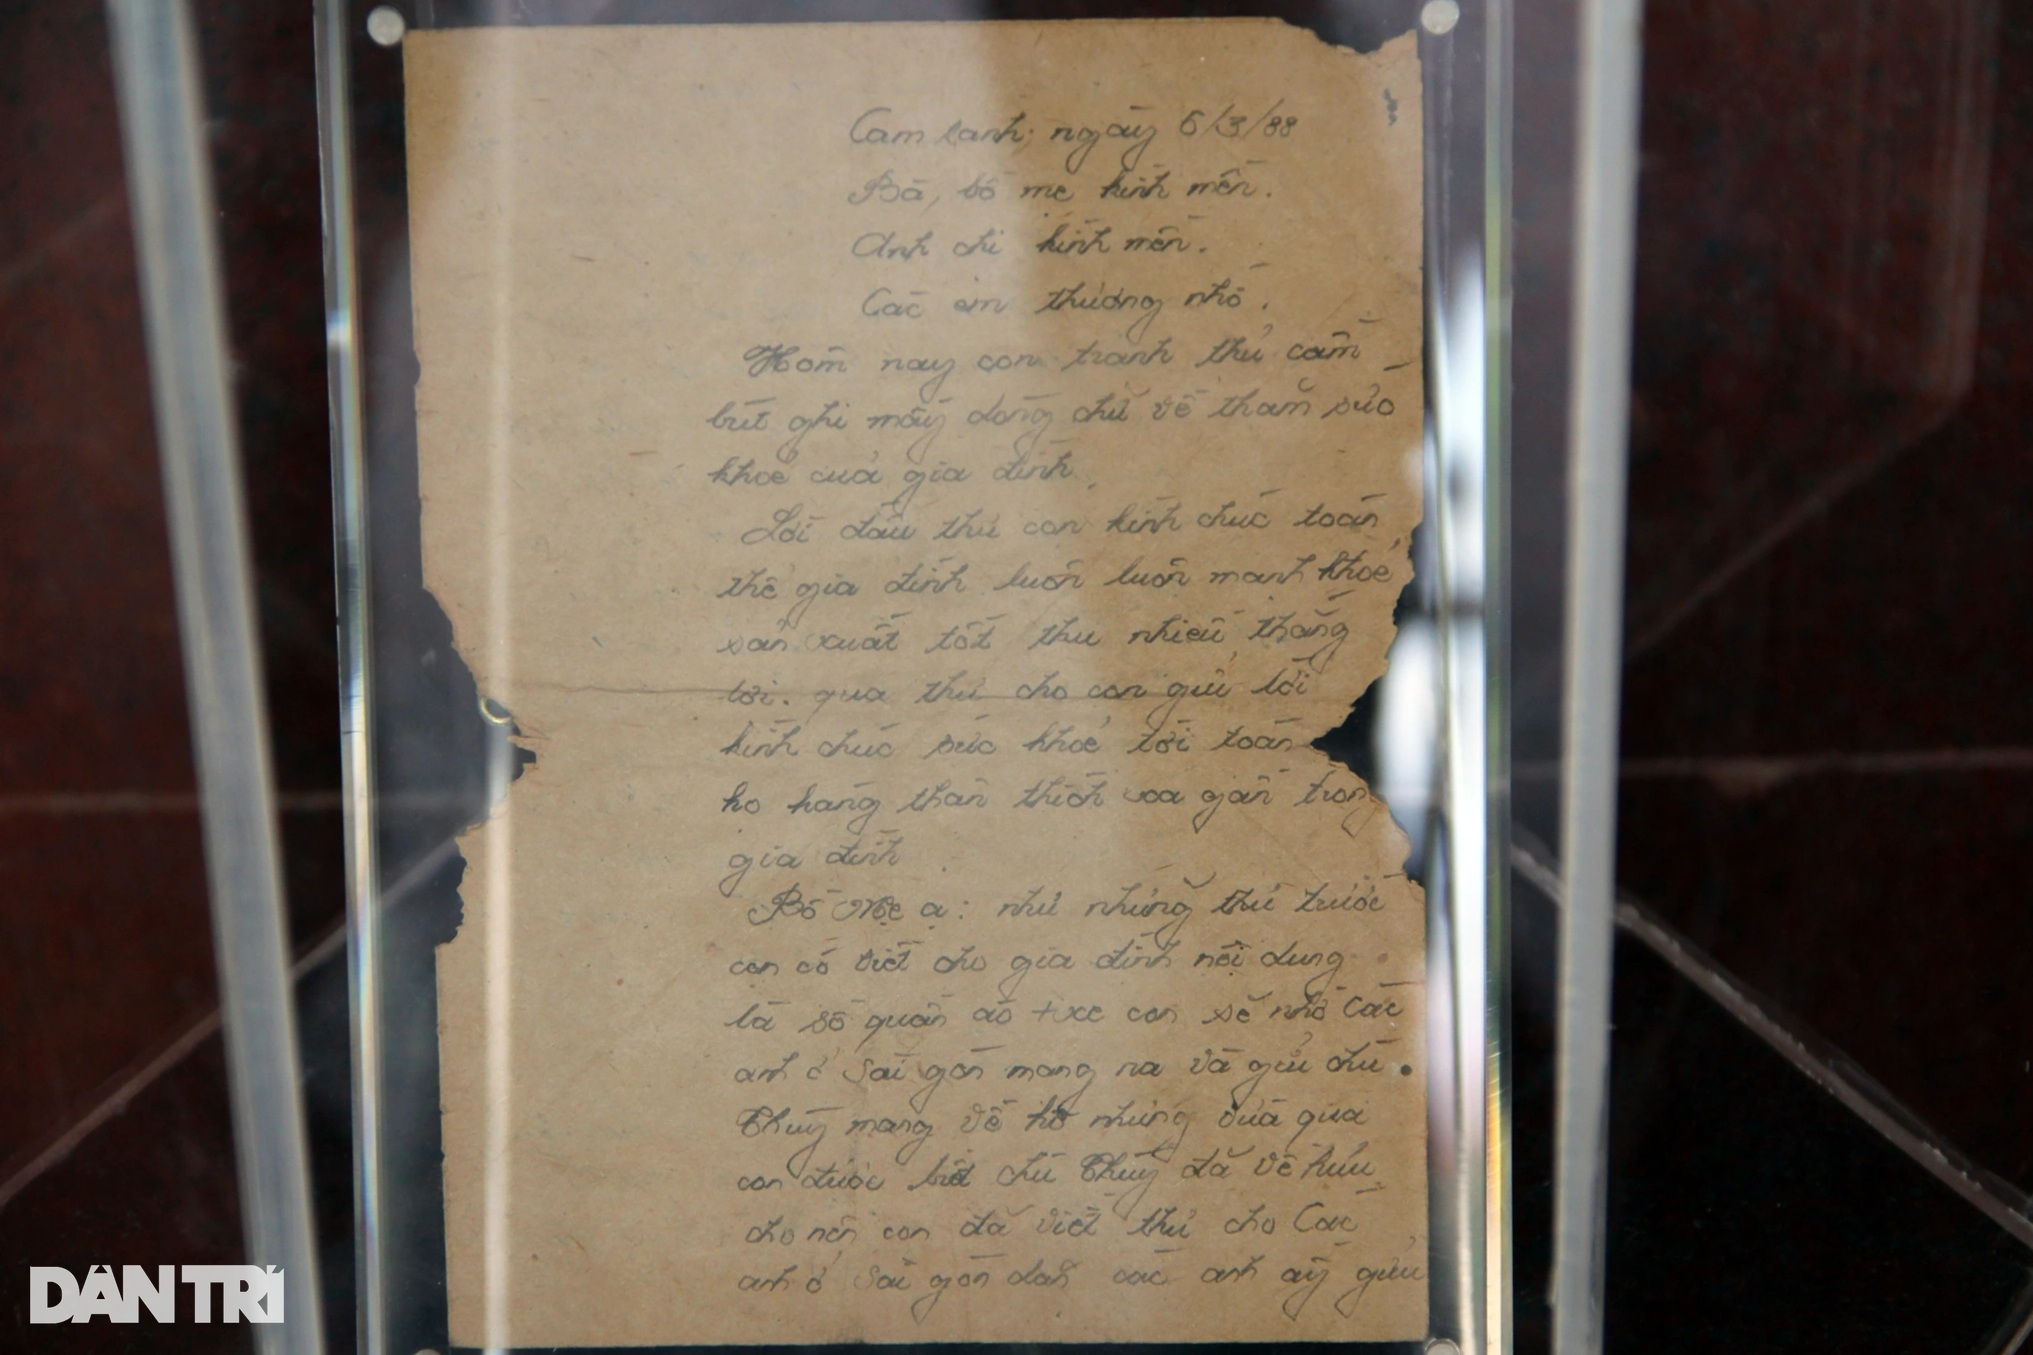 Cam Ranh, ngày 6/3/88
Bà, bố mẹ kính mến.
Anh chị kính mến.
Các em thương nhớ.
Hôm nay con tranh thủ cầm
bút ghi mấy dòng chữ về thăm sức
khoẻ của gia đình.
Lời đầu thư con kính chúc toàn
thể gia đình luôn luôn mạnh khoẻ
sản xuất tốt thu nhiều thắng
lợi. qua thư cho con gửi lời
kính chúc sức khoẻ tới toàn
họ hàng thân thích xa gần trong
gia đình
Bố Mẹ ạ: như những thư trước
con có viết cho gia đình nội dung
là số quần áo + xe con sẽ nhờ các
anh ở Sài gòn mang ra và gửi chú.
Thuỷ mang về hộ nhưng vừa qua
con được biết chú Thuỷ đã về hưu
cho nên con đã viết thư cho Các
anh ở Sài gòn dặn các anh ấy gửi
DÂN TRÍ